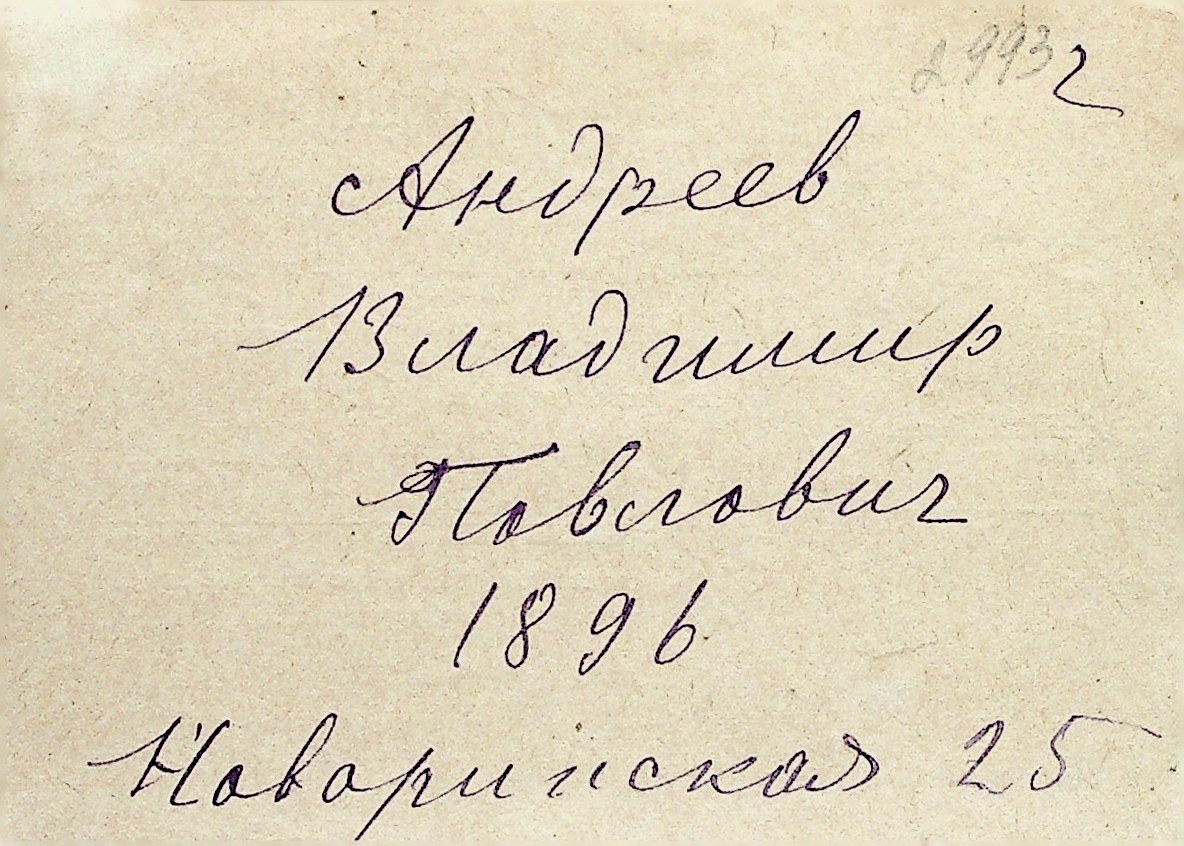 2993 2
Андреев
Владимир
Павлович
1896
Новоринская 25